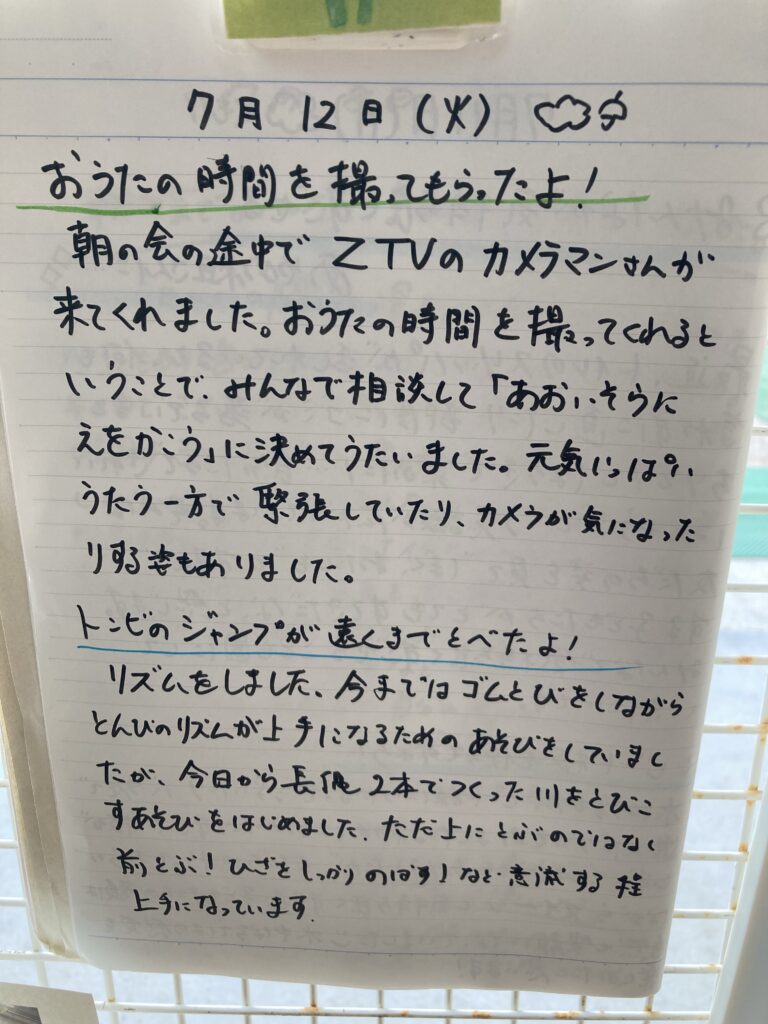 7月12日(火)
おうたの時間を撮ってもらったよ!
朝の会の途中でZTVのカメラマンさんが
来てくれました。おうたの時間を撮ってくれると
いうことで、みんなで相談して「あおいそらに
えをかこう」に決めてうたいました。元気いっぱい
うたう一方で緊張していたり、カメラが気になった
りする姿もありました。
トンビのジャンプが遠くまでとべたよ!
リズムをしました、今まではゴムとびをしながら
とんびのリズムが上手になるためのあそびをしていまし
たが、今日から長縄2本でつくった川をとびこ
すあそびをはじめました、ただ上にとぶのではなく
前とぶ!ひざをしっかりのばす!など意識する程
上手になっています.